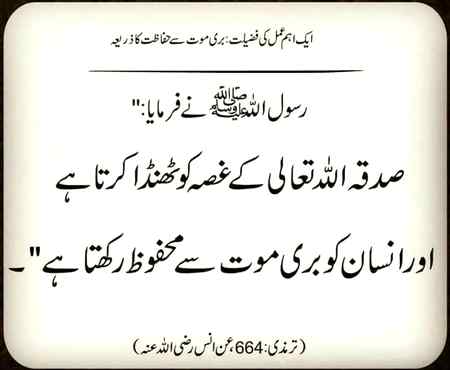 ایک اہم عمل کی فضیلت: بری موت سے حفاظت کا ذریعہ
رسول اللہ ﷺ نے فرمایا: "
صدقہ اللہ تعالی کے غصہ کو ٹھنڈا کرتا ہے
اور انسان کو بری موت سے محفوظ رکھتا ہے"۔
(ترمذی: 664، عن انس رضی اللہ عنہ)